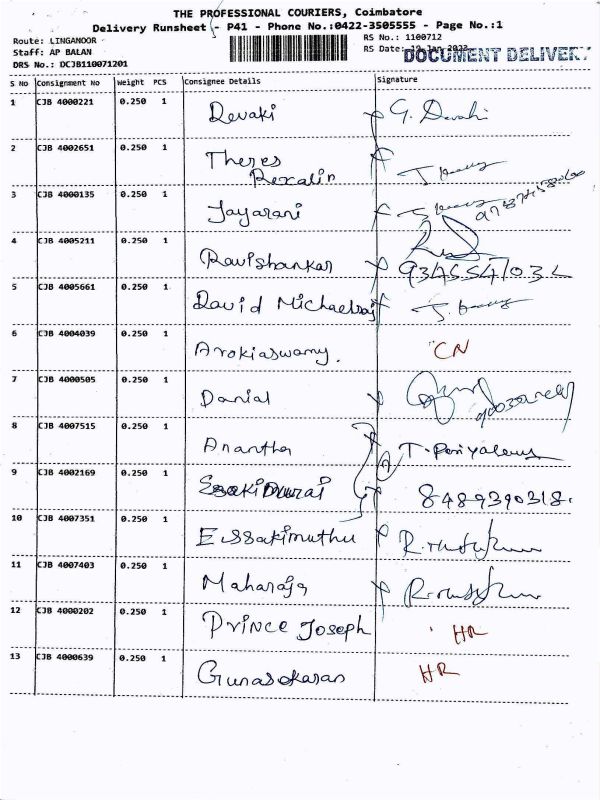 THE PROFESSIONAL COURIERS, Coimbatore
Delivery Runsheet - P41 - Phone No.:0422-3505555 - Page No.:1
Route: LINGANOOR
Staff: AP BALAN
DRS No.: DCJB110071201
RS No.: 1100712
RS Date: 19 Jan 2022
DOCUMENT DELIVERY
S No Consignment No Weight PCS Consignee Details Signature
1 CJB 4000221 0.250 1 Devaki G. Devaki
2 CJB 4002651 0.250 1 Theres
Rexalin
3 CJB 4000135 0.250 1 Jayarani
4 CJB 4005211 0.250 1 Ravishankar
9345547032
5 CJB 4005661 0.250 1 David Michaelraj
6 CJB 4004039 0.250 1 Arokiaswamy. CN
7 CJB 4000505 0.250 1 Danial
8 CJB 4007515 0.250 1 Anantha
9 CJB 4002169 0.250 1 8489390318.
10 CJB 4007351 0.250 1 Essakimuthu
11 CJB 4007403 0.250 1 Maharaja
12 CJB 4000202 0.250 1 Prince Joseph HR
13 CJB 4000639 0.250 1 Gunasekaran HR